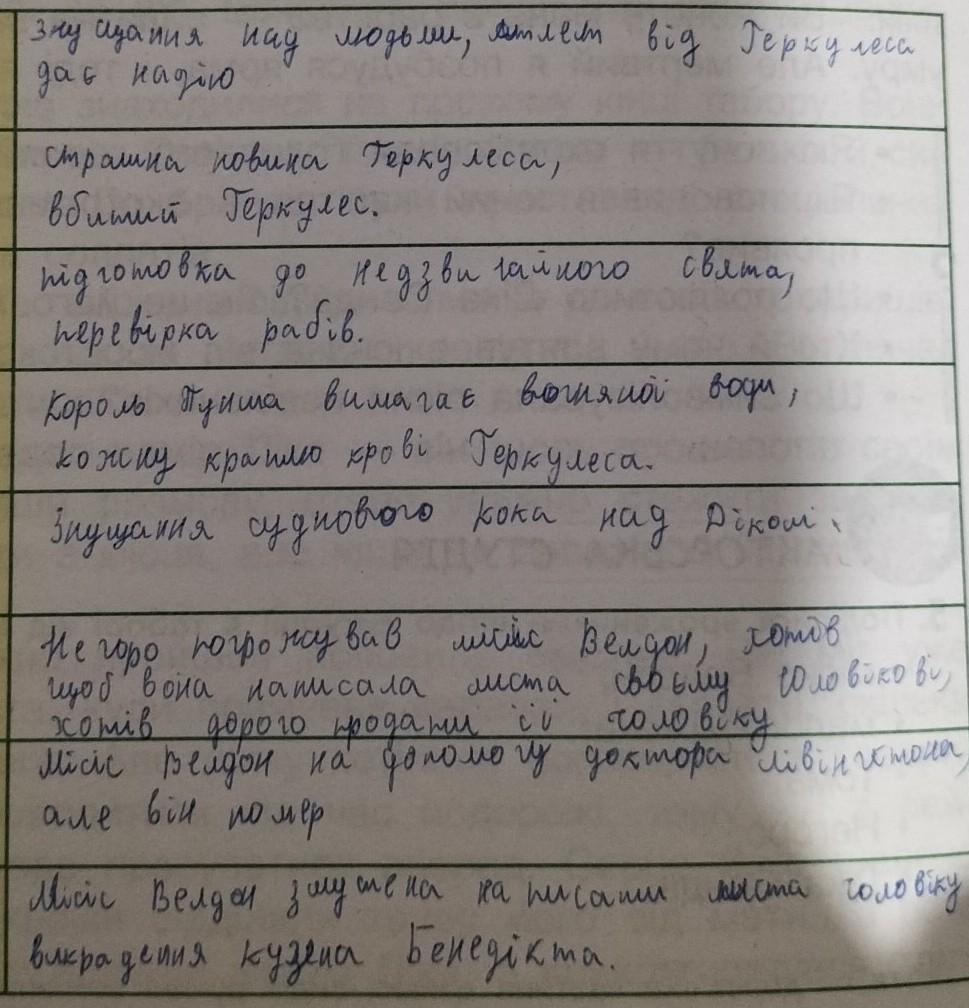 знущання над людьми, атлет від Геркулеса
дає надію
страшна новина Геркулеса,
вбитий Геркулес.
підготовка до недзвичайного свята,
перевірка рабів.
король вимагає вогняної води,
кожну краплю крові Геркулеса.
Знущання суднового кока над Діком.
Негоро погрожував місіс Велдон, хотів
щоб вона написала листа своєму чоловікові,
хотів дорого продати її чоловіку
Місіс Велдон на допомогу доктора лівінгстона,
але він помер
Місіс Велдон змушена написати листа чоловіку
викрадення кузена Бенедікта.